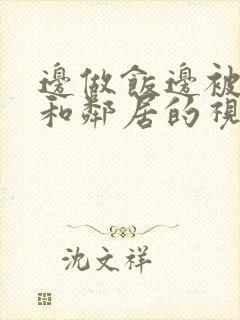 邊做飯邊被
和鄰居的視
沈文祥